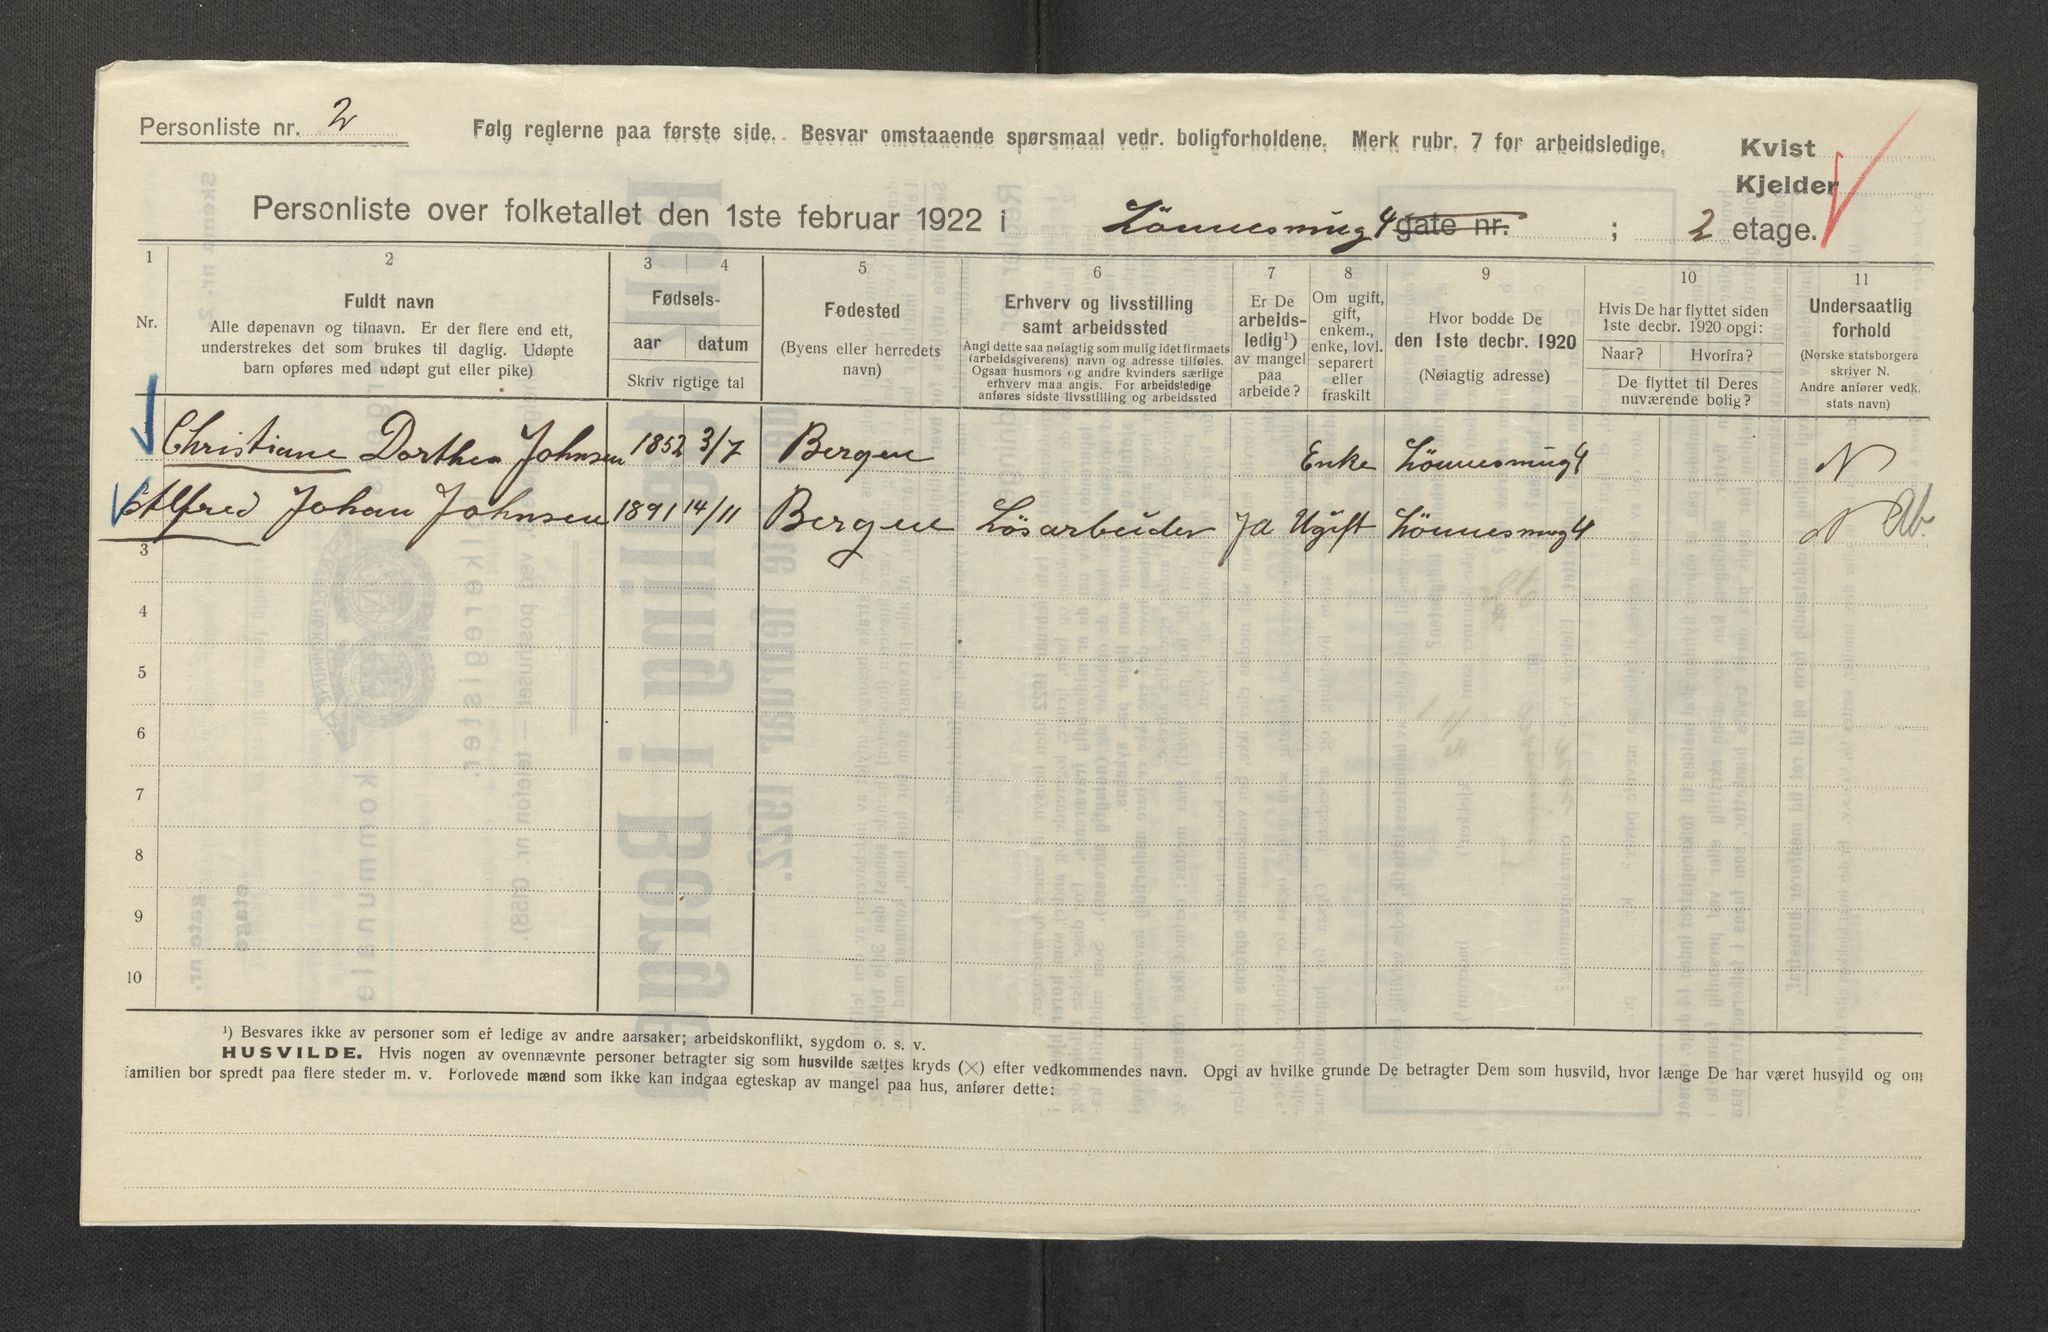 Personliste nr. 2
Følg reglerne paa første side. Besvar omstaaende spørsmaal vedr. boligforholdene. Merk rubr. 7 for arbeidsledige.
Kvist
Kjelder
Personliste over folketallet den 1ste februar 1922 i Lönnesmug 4 gate nr. ; 2 etage.
1 2 3 4 5 6 7 8 9 10 11
Nr.
Fuldt navn
Alle døpenavn og tilnavn. Er der flere end ett,
understrekes det som brukes til daglig. Udøpte
barn opføres med udøpt gut eller pike)
Fødsels-
aar datum
Skriv rigtige tal
Fødested
(Byens eller herredets
navn)
Erhverv og livsstilling
samt arbeidssted
Angi dette saa nøiagtig som mulig idet firmaets
(arbeidsgiverens) navn og adresse tilføies.
Ogsaa husmors og andre kvinders særlige
erhverv maa angis. For arbeidsledige
anføres sidste livsstilling og arbeidssted
Er De
arbeids-
ledig¹)
av mangel
paa
arbeide?
Om ugift,
gift,
enkem.,
enke, lovl.
separert
eller
fraskilt
Hvor bodde De
den 1ste decbr. 1920
(Nøiagtig adresse)
Hvis De har flyttet siden
1ste decbr. 1920 opgi:
Naar? Hvorfra?
De flyttet til Deres
nuværende bolig?
Undersaatlig
forhold
(Norske statsborgere
skriver N.
Andre anfører vedk.
stats navn)
Christiane Dorthea Johnsen 1852 3/7 Bergen Enke Lönnesmug 4 N
Alfred Johan Johnsen 1891 14/11 Bergen Løsarbeider Ja Ugift Lönnesmug 4 N Ab.
3
4
5
6
7
8
9
10
¹) Besvares ikke av personer som er ledige av andre aarsaker; arbeidskonflikt, sygdom o. s. v.
HUSVILDE. Hvis nogen av ovennævnte personer betragter sig som husvilde sættes kryds (×) efter vedkommendes navn. Opgi av hvilke grunde De betragter Dem som husvild, hvor længe De har været husvild og om
familien bor spredt paa flere steder m. v. Forlovede mænd som ikke kan indgaa egteskap av mangel paa hus, anfører dette: